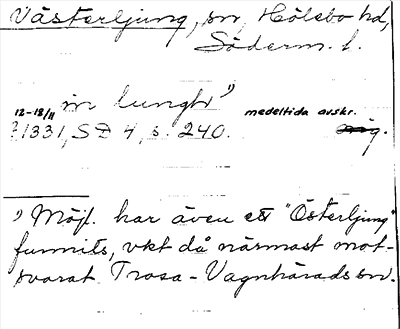 Västerljung, sn, Hölebo hd,
Söderm. l.
in lungh 1)
12-18/11 medeltida avskr.
? 1331, SD 4, s. 240. orig.
1) Möjl. har även ett "Österljung"
funnits, vkt då närmast mot-
svarat Trosa-Vagnhärads sn.